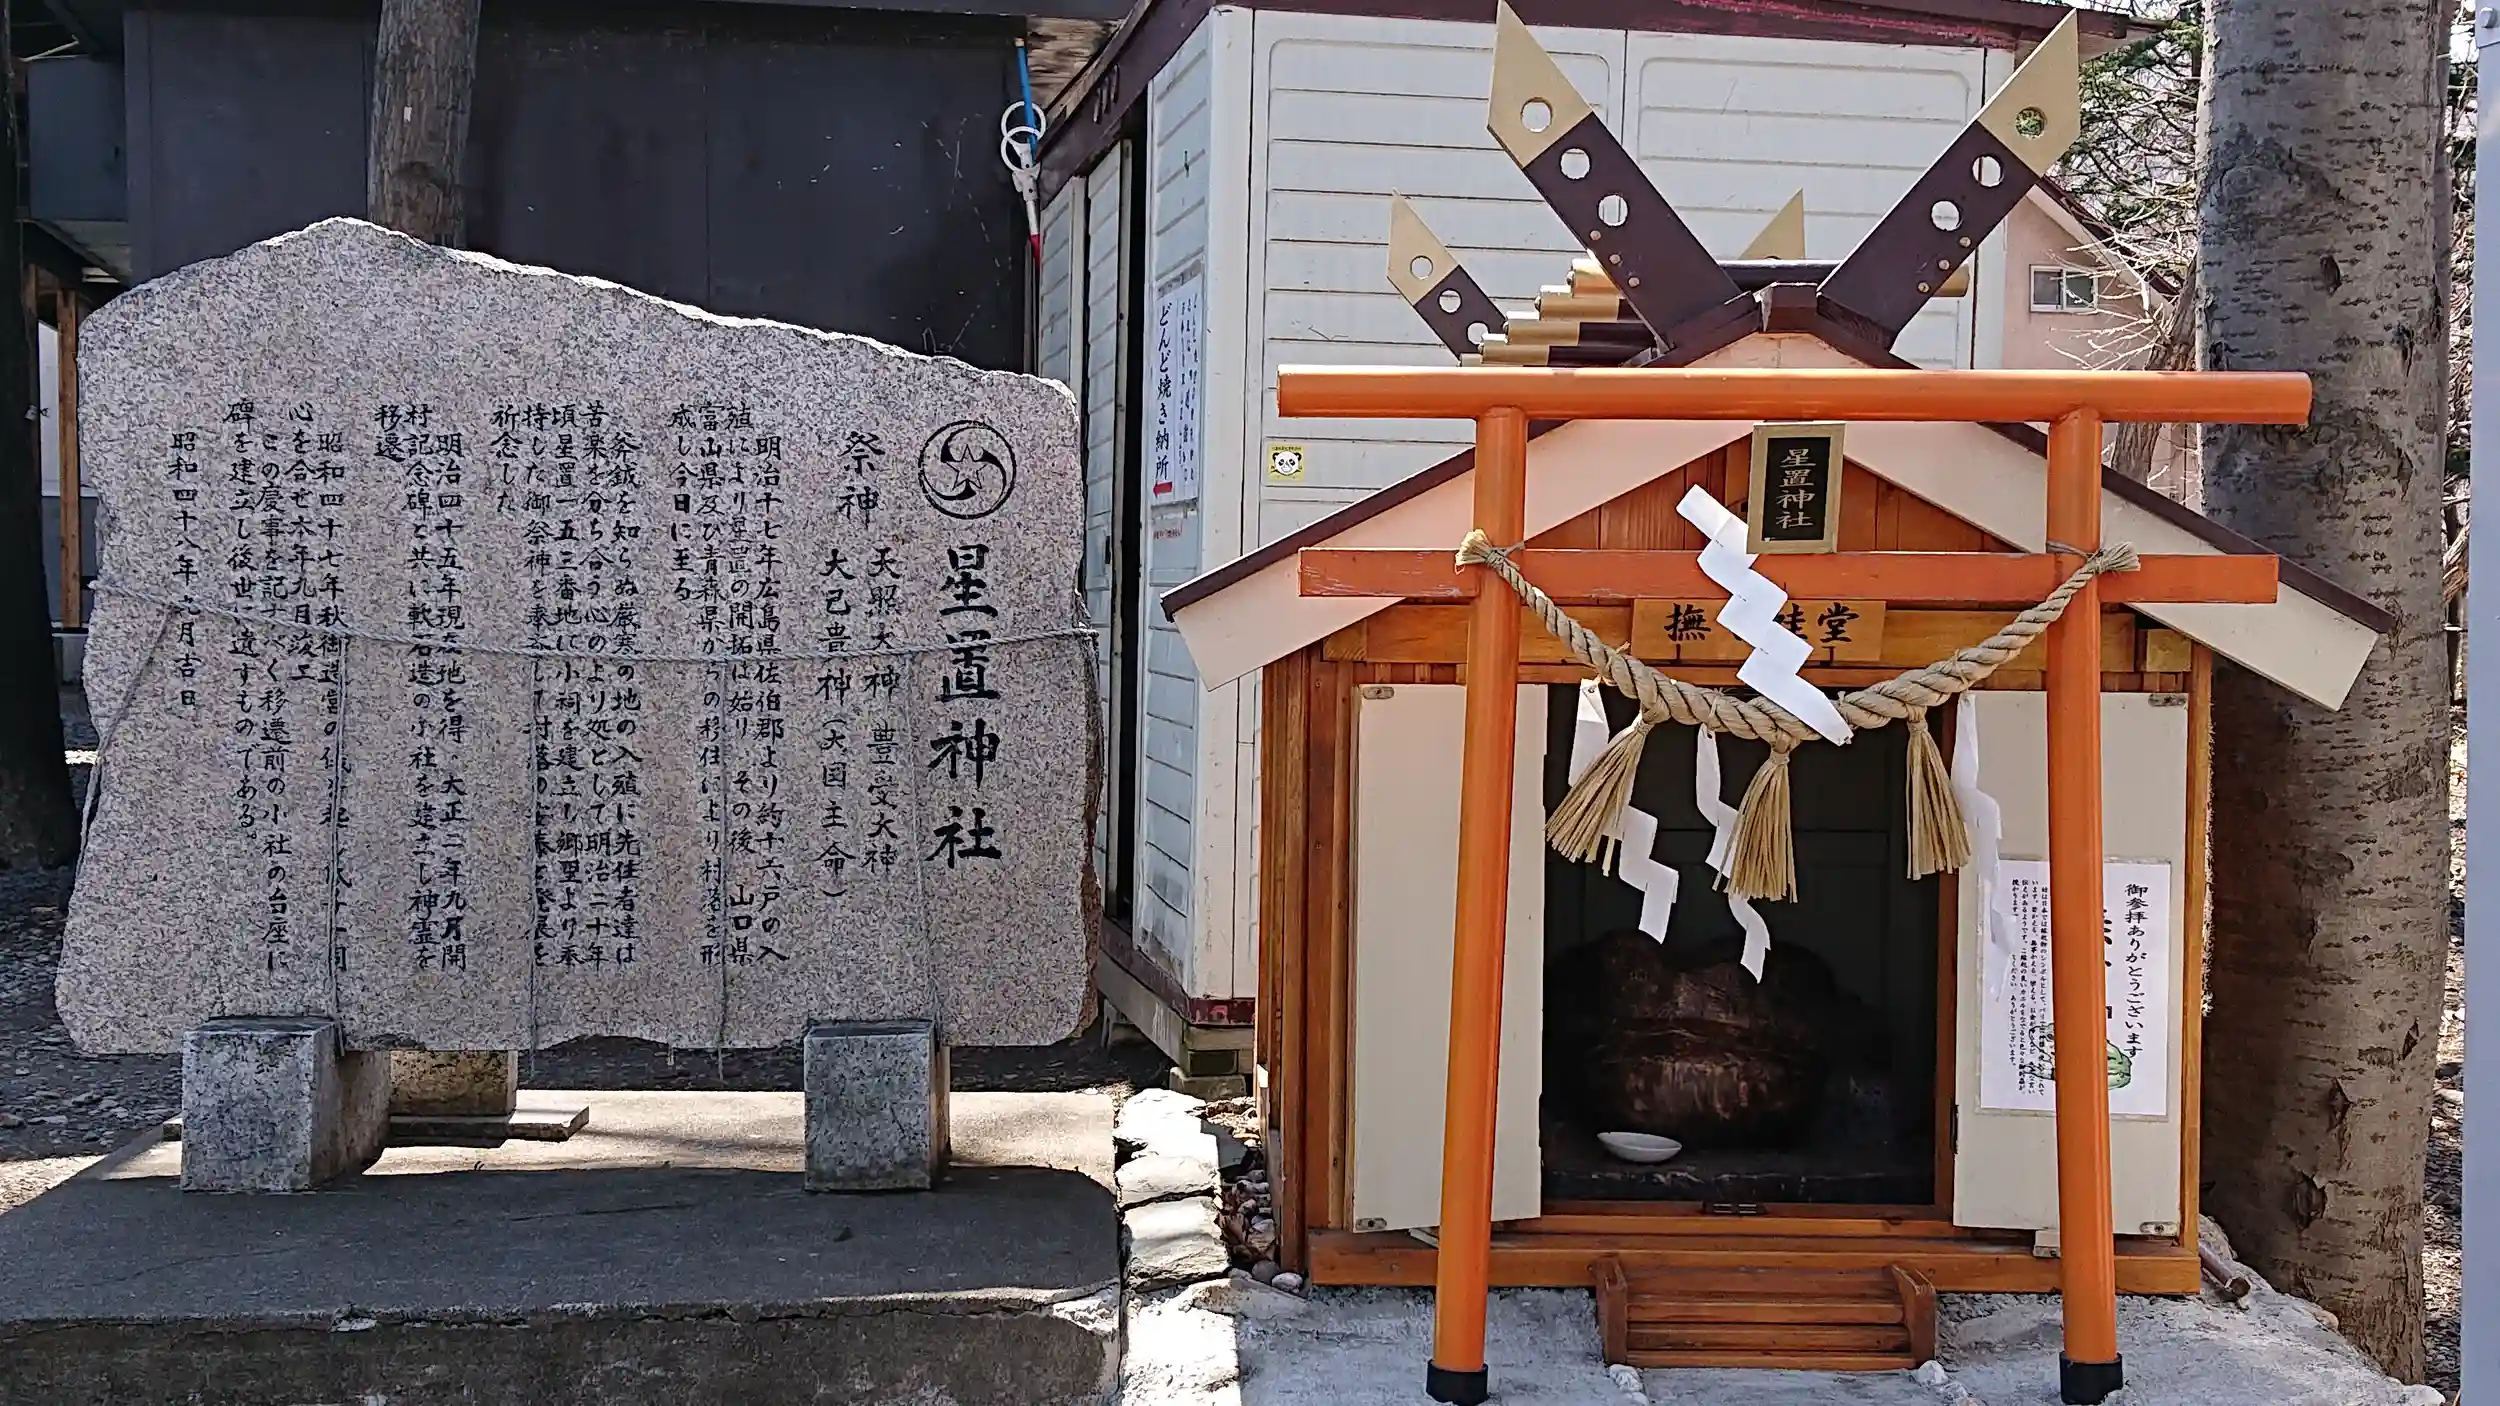 星置神社
祭神 天照大神 豊受大神
大己貴神（大国主命）
明治十七年広島県佐伯郡より約十六戸の入
殖により星置の開拓は始り、その後、山口県
富山県及び青森県からの移住により村落を形
成し今日に至る
斧鉞を知らぬ厳寒の地の入殖に先住者達は
苦楽を分ち合う心のより処として明治二十年
頃星置一五三番地に小祠を建立し郷里より奉
持した御祭神を奉斎して村落の安泰と発展を
祈念した
明治四十五年現在地を得、大正二年九月開
村記念碑と共に軟石造の小社を建立し神霊を
移遷
昭和四十七年秋御造営の 同
心を合せ本年九月竣工
この慶事を記すべく移遷前の小社の台座に
碑を建立し後世に遺すものである。
昭和四十八年九月吉日
どんど焼き納所
星置神社
撫 堂
御参拝ありがとうございます